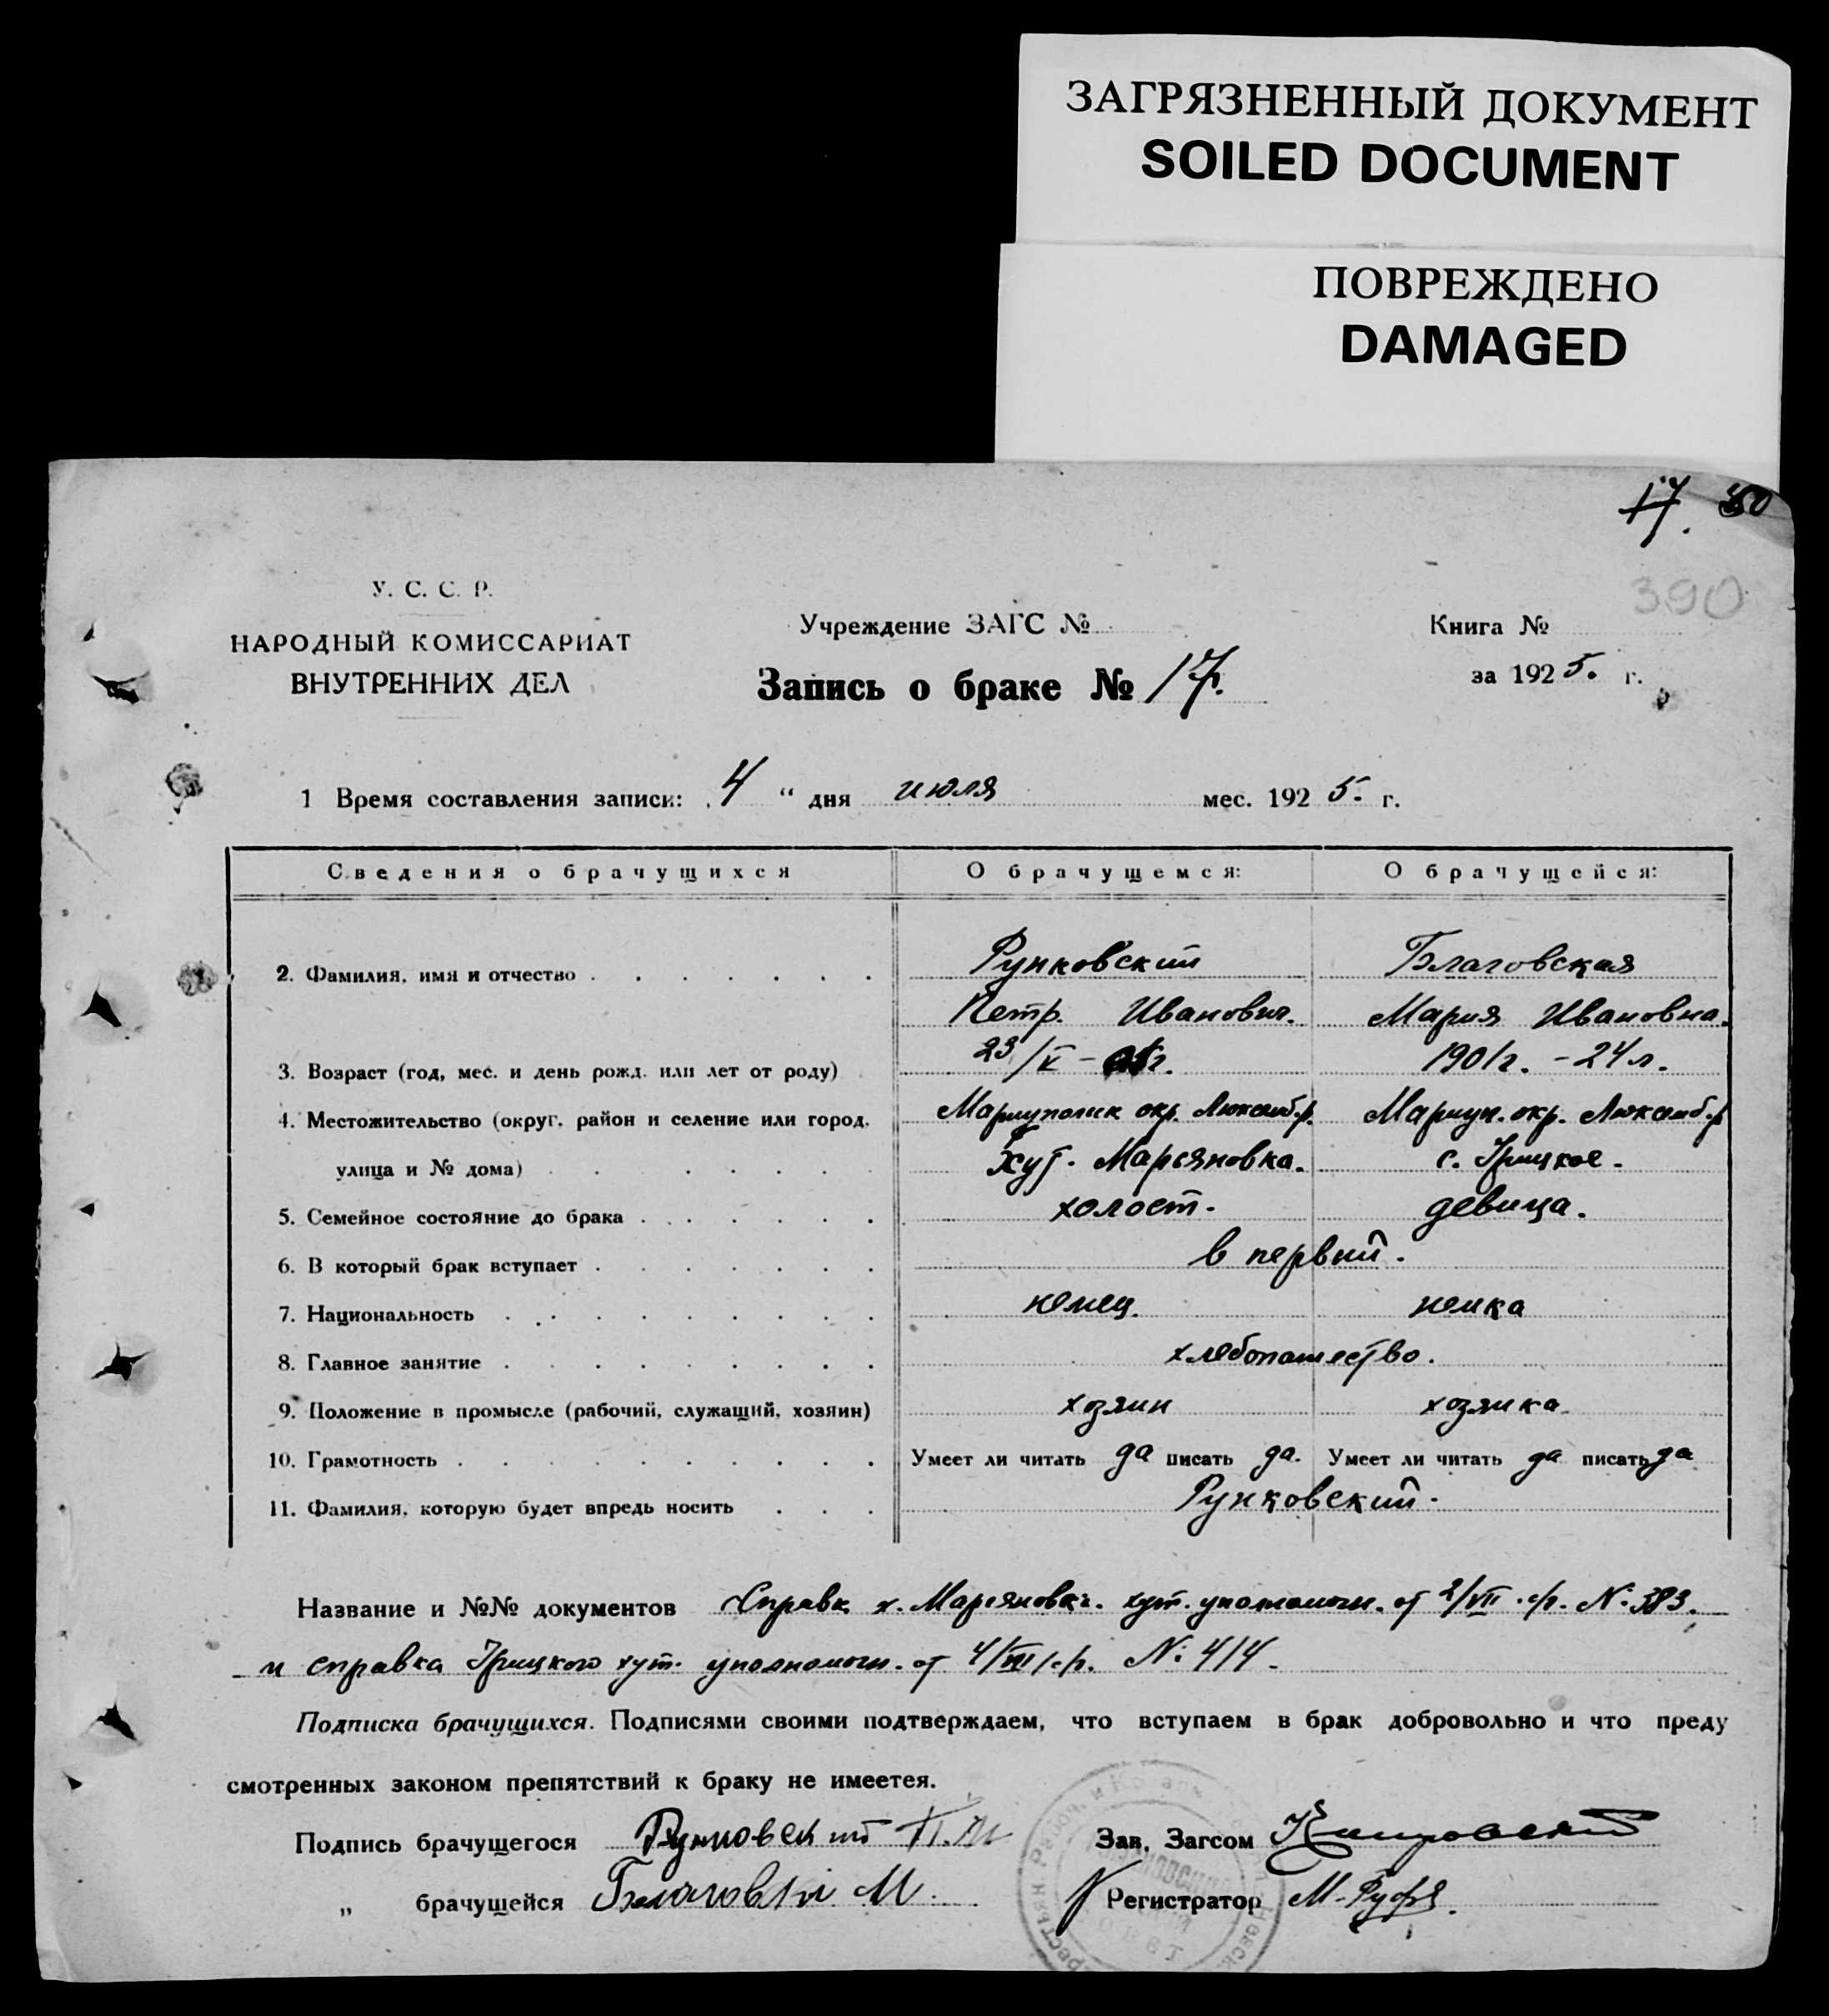 ЗАГРЯЗНЕННЫЙ ДОКУМЕНТ
SOILED DOCUMENT
ПОВРЕЖДЕНО
DAMAGED
17. 50
390
У. С. С. Р.
НАРОДНЫЙ КОМИССАРИАТ
ВНУТРЕННИХ ДЕЛ
Учреждение ЗАГС №
Запись о браке № 17.
Книга №
за 1925. г.
1 Время составления записи: 4 " дня июля мес. 1925. г.
Сведения о брачущихся О брачущемся: О брачущейся:
2. Фамилия, имя и отчество Рунковский Благовская
Петр. Иванович. Мария Ивановна.
3. Возраст (год, мес. и день рожд. или лет от роду) 23/V - г. 1901г. - 24 л.
4. Местожительство (округ, район и селение или город, Мариуполик окр. Люксемб.р. Мариуп. окр. Люксемб.р
улица и № дома) Хут. Марьяновка. с. Урицкое.
5. Семейное состояние до брака холост. девица.
6. В который брак вступает в первый.
7. Национальность немец. немка
8. Главное занятие хлебопашество.
9. Положение в промысле (рабочий, служащий, хозяин) хозяин хозяика.
10. Грамотность Умеет ли читать да писать да. Умеет ли читать да писать да
11. Фамилия, которую будет впредь носить Рунковский.
Название и №№ документов Справк х. Марьяновк. хут. уполномоч. от 2/VII с/г. №: 383.
и справка Урицкого хут. уполномоч. от 4/VII с/г. №: 414.
Подписка брачущихся. Подписями своими подтверждаем, что вступаем в брак добровольно и что преду
смотренных законом препятствий к браку не имеетея.
Подпись брачущегося Рунковский П.И Зав. Загсом
" брачущейся Благовскі М. Регистратор М.